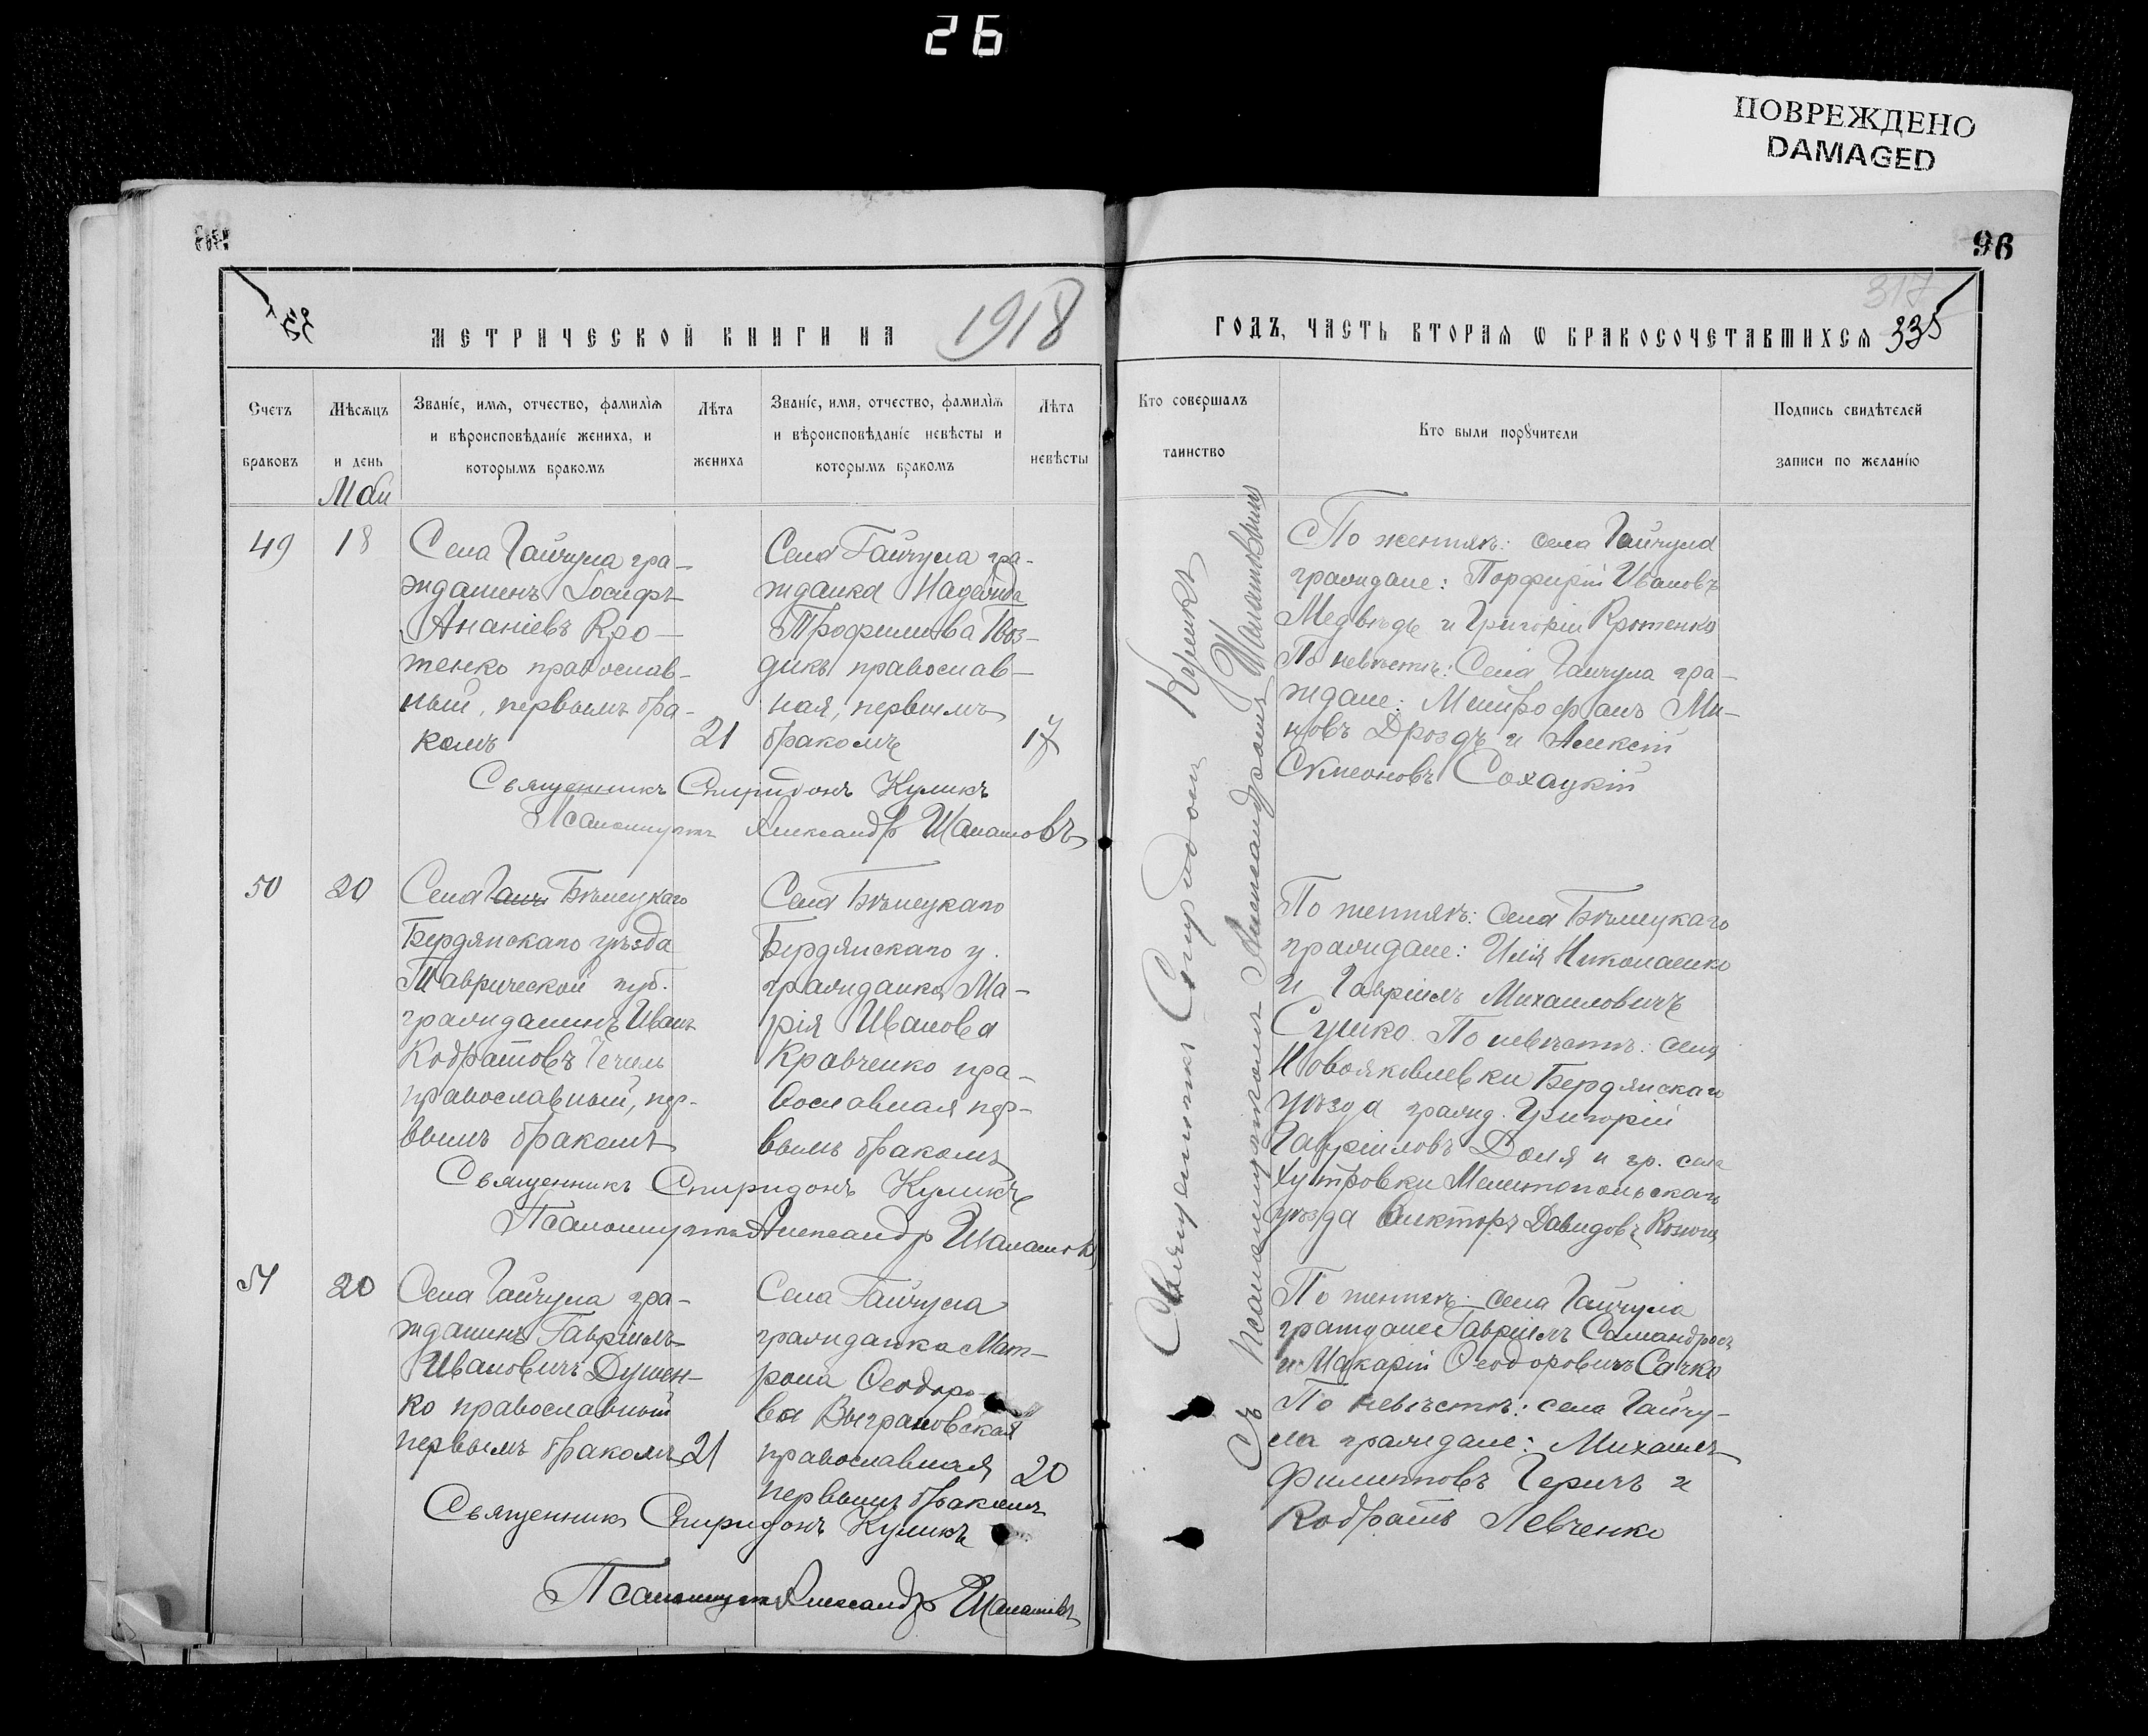 26
ПОВРЕЖДЕНО
DAMAGED
96
317
335
МЕТРИЧЕСКОЙ КНИГИ НА 1918
ГОДЪ, ЧАСТЬ ВТОРАЯ Ѡ БРАКОСОЧЕТАВШИХСЯ
Счетъ
браковъ
Мѣсяцъ
и день
Званіе, имя, отчество, фамилія
и вѣроисповѣданіе жениха, и
которымъ бракомъ
Лѣта
жениха
Званіе, имя, отчество, фамилія
и вѣроисповѣданіе невѣсты и
которымъ бракомъ
Лѣта
невѣсты
Кто совершалъ
таинство
Кто были порꙋчители
Подпись свидѣтелей
записи по желанію
Май
49
18
Села Гайчула гра-
жданинъ Іосифъ
Ананіевъ Кро-
тенко православ-
ный, первымъ бра-
комъ
21
Села Гайчула гра-
жданка Надежда
Трофимова Гвоз-
дикъ православ-
ная, первымъ
бракомъ
17
Священникъ Спиридонъ Куликъ
Псаломщикъ Александръ Шаламовъ
По женихѣ: села Гайчула
граждане: Порфирій Ивановъ
Медвѣдь и Григорій Кротенко
По невѣстѣ: Села Гайчула гра-
ждане: Митрофанъ Ми-
новъ Дроздъ и Алексій
Симеоновъ Сохацкій
50
20
Села Гайч Бѣлецкаго
Бердянскаго уѣзда
Таврической губ.
гражданинъ Иванъ
Кодратовъ Чечель
православный, пер-
вымъ бракомъ
Села Бѣлецкаго
Бердянскаго у.
гражданка Ма-
рія Иванова
Кравченко пра-
вославная пер-
вымъ бракомъ
Священникъ Спиридонъ Куликъ
Псаломщикъ Александр Шаламовъ
По женихѣ: Села Бѣлецкаго
граждане: Илія Николаенко
и Гавріилъ Михаиловичъ
Сушко. По невѣстѣ: села
Новояковлевки Бердянскаго
уѣзда гражд. Григорій
Гавріиловъ Доля и гр. села
Мелитопольскаго
уѣзда Викторъ Давидовъ
51
20
Села Гайчула гра-
жданинъ Гавріилъ
Ивановичъ Душен-
ко православный
первымъ бракомъ
21
Села Гайчула
гражданка Мат-
рона Ѳеодоро-
ва Выграновская
православная
первымъ бракомъ
20
Священникъ Спиридонъ Куликъ
Псаломщикъ Александръ Шаламовъ
По женихѣ: села Гайчула
граждане Гавріилъ
и Макарій Ѳеодоровичъ Сачко
По невѣстѣ: села Гайчу-
ла граждане: Михаилъ
Филипповъ Геричъ и
Кодратъ Левченко
Священникъ Спиридонъ Куликъ
Съ Псаломщикомъ Александромъ Шаламовымъ